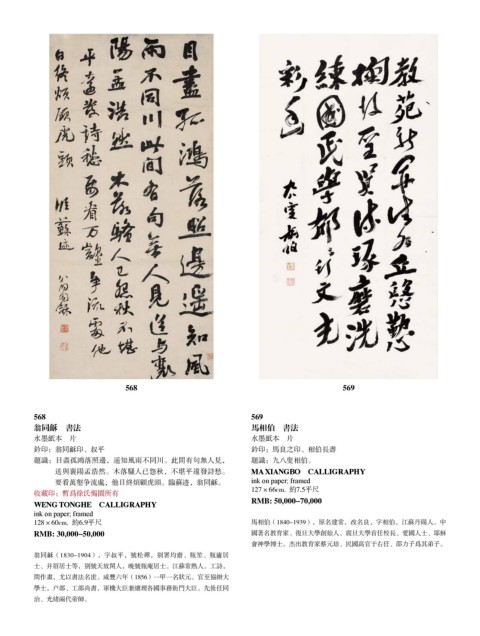 目盡孤鴻落照邊遙知風
雨不同川此间有句無人見送与襄
陽孟浩然 木落騷人已怨秋不堪
平遠發詩愁要看万壑争流處他
日終煩顧虎頭 臨蘇迹 翁同龢
琢磨洗
練國民學
文光
彩
相伯
568
569
568
翁同龢 書法
水墨紙本 片
鈐印：翁同龢印、叔平
題識：目盡孤鴻落照邊，遥知風雨不同川。此間有句無人見，
送與襄陽孟浩然。木落騷人已怨秋，不堪平遠發詩愁。
要看萬壑争流處，他日終煩顧虎頭。臨蘇迹，翁同龢。
收藏印：暫爲徐氏侷閣所有
WENG TONGHE CALLIGRAPHY
ink on paper; framed
128 × 60cm. 約6.9平尺
RMB: 30,000–50,000
翁同龢（1830~1904），字叔平，號松禪，別署均齋、瓶笙、瓶廬居
士、井眉居士等，別號天放閑人，晚號瓶庵居士。江蘇常熟人。工詩，
間作畫，尤以書法名世。咸豐六年（1856）一甲一名狀元。官至協辦大
學士，户部、工部尚書，軍機大臣兼總理各國事務衙門大臣。先後任同
治、光緒兩代帝師。
569
馬相伯 書法
水墨紙本 片
鈐印：馬良之印、相伯長壽
題識：九八叟相伯。
MA XIANGBO CALLIGRAPHY
ink on paper; framed
127 × 66cm. 約7.5平尺
RMB: 50,000–70,000
馬相伯（1840~1939），原名建常，改名良，字相伯，江蘇丹陽人。中
國著名教育家、復旦大學創始人、震旦大學首任校長、愛國人士、耶穌
會神學博士。杰出教育家蔡元培、民國高官于右任、邵力子爲其弟子。